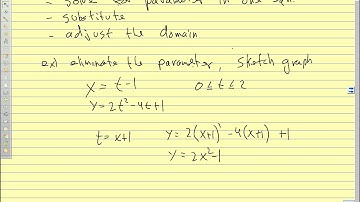 - solve the parameter in one eqn.
- substitute
- adjust the domain
ex) eliminate the parameter, sketch graph
x = t - 1 0 ≤ t ≤ 2
y = 2t² - 4t + 1
t = x+1 y = 2(x+1)² - 4(x+1) + 1
y = 2x² - 1